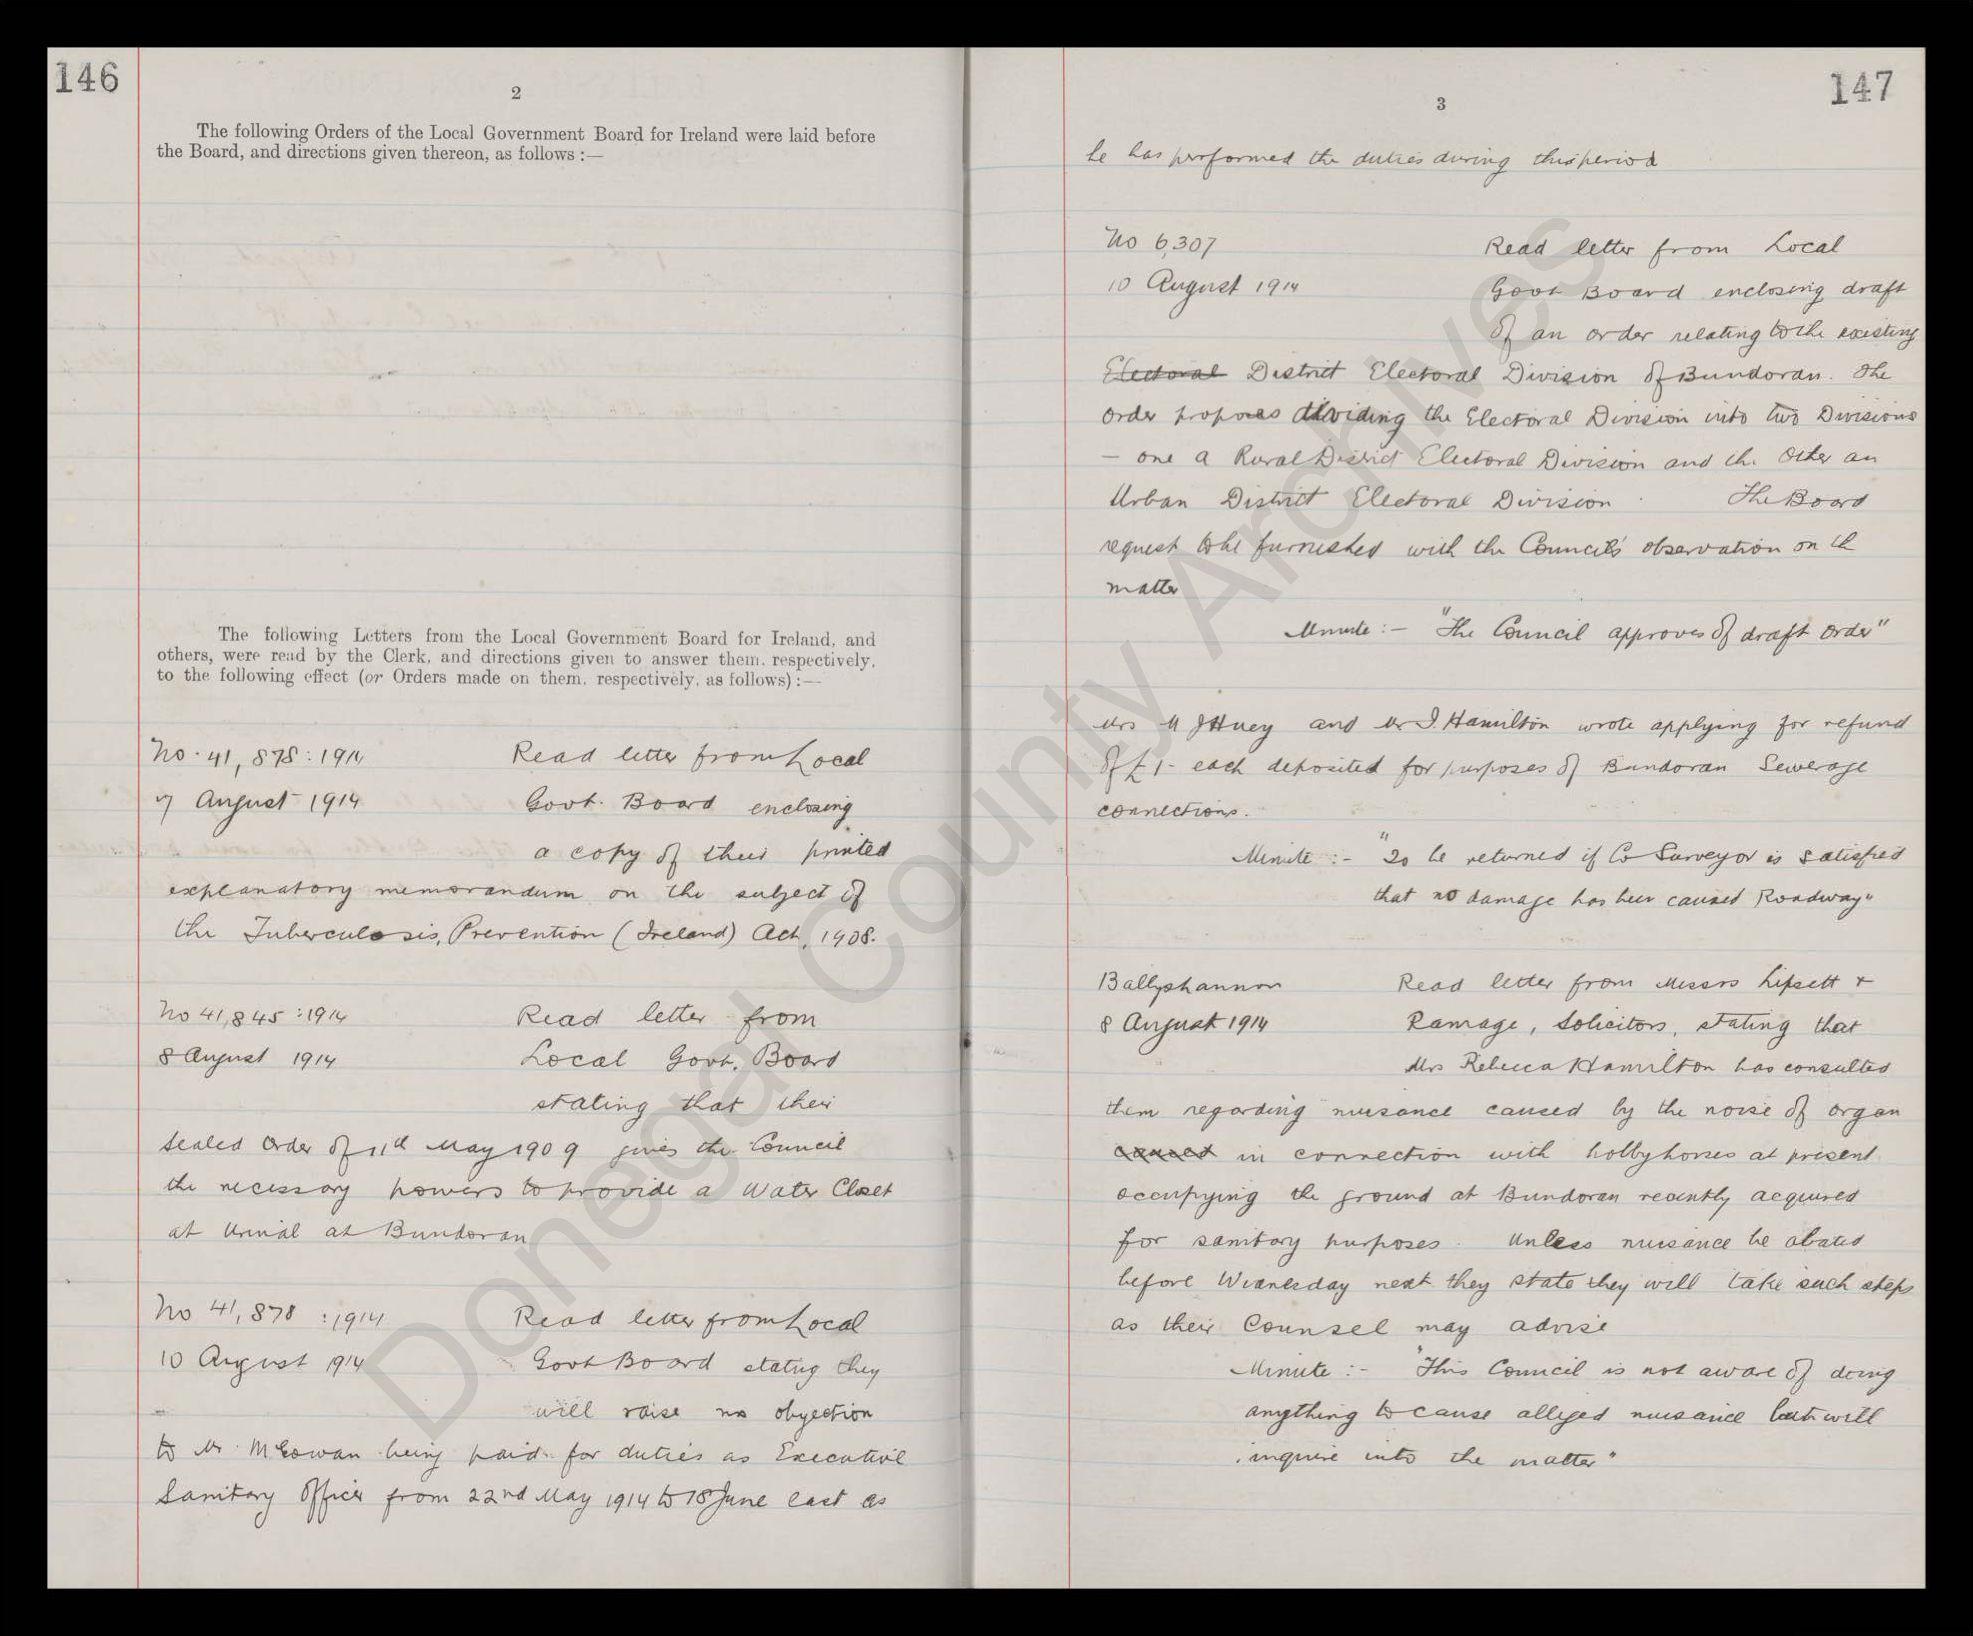 146
2
The following Orders of the Local Government Board for Ireland were laid before
the Board, and directions given thereon, as follows :—
The following Letters from the Local Government Board for Ireland, and
others, were read by the Clerk, and directions given to answer them, respectively,
to the following effect (or Orders made on them, respectively, as follows) :—
No. 41,878 : 1914
Read letter from Local
7 August 1914
Govt. Board enclosing
a copy of their printed
explanatory memorandum on the subject of
the Tuberculosis, Prevention (Ireland) Act, 1908.
No 41,845 : 1914
Read letter from
8 August 1914
Local Govt. Board
stating that their
Sealed Order of 11th May 1909 gives the Council
the necessary powers to provide a Water Closet
at Urinal at Bundoran
No 41,878 : 1914
Read letter from Local
10 August 1914
Govt Board stating they
will raise no objection
to Mr. McGowan being paid for duties as Executive
Sanitary Officer from 22nd May 1914 to 18 June last as
147
3
he has performed the duties during this period
No 6,307
Read letter from Local
10 August 1914
Govt Board enclosing draft
of an order relating to the existing
Electoral District Electoral Division of Bundoran. The
order proposes dividing the Electoral Division into two Divisions
— one a Rural District Electoral Division and the Other an
Urban District Electoral Division . The Board
request to be furnished with the Council's observation on th
matter
Minute :— "The Council approves of draft order"
Mrs M J Huey and Mr J. Hamilton wrote applying for refund
of £1- each deposited for purposes of Bundoran Sewerage
connections.
Minute :- "To be returned if Co Surveyor is satisfied
that no damage has been caused Roadway"
Ballyshannon
Read letter from Messrs Lipsett +
8 August 1914
Ramage, Solicitors, stating that
Mrs Rebecca Hamilton has consulted
them regarding nuisance caused by the noise of organ
caused in connection with hobbyhorses at present
occupying the ground at Bundoran recently acquired
for sanitary purposes. Unless nuisance be abated
before Wednesday next they state they will take such steps
as their Counsel may advise
Minute :- "This Council is not aware of doing
anything to cause alleged nuisance but will
inquire into the matter"
Donegal County Archives